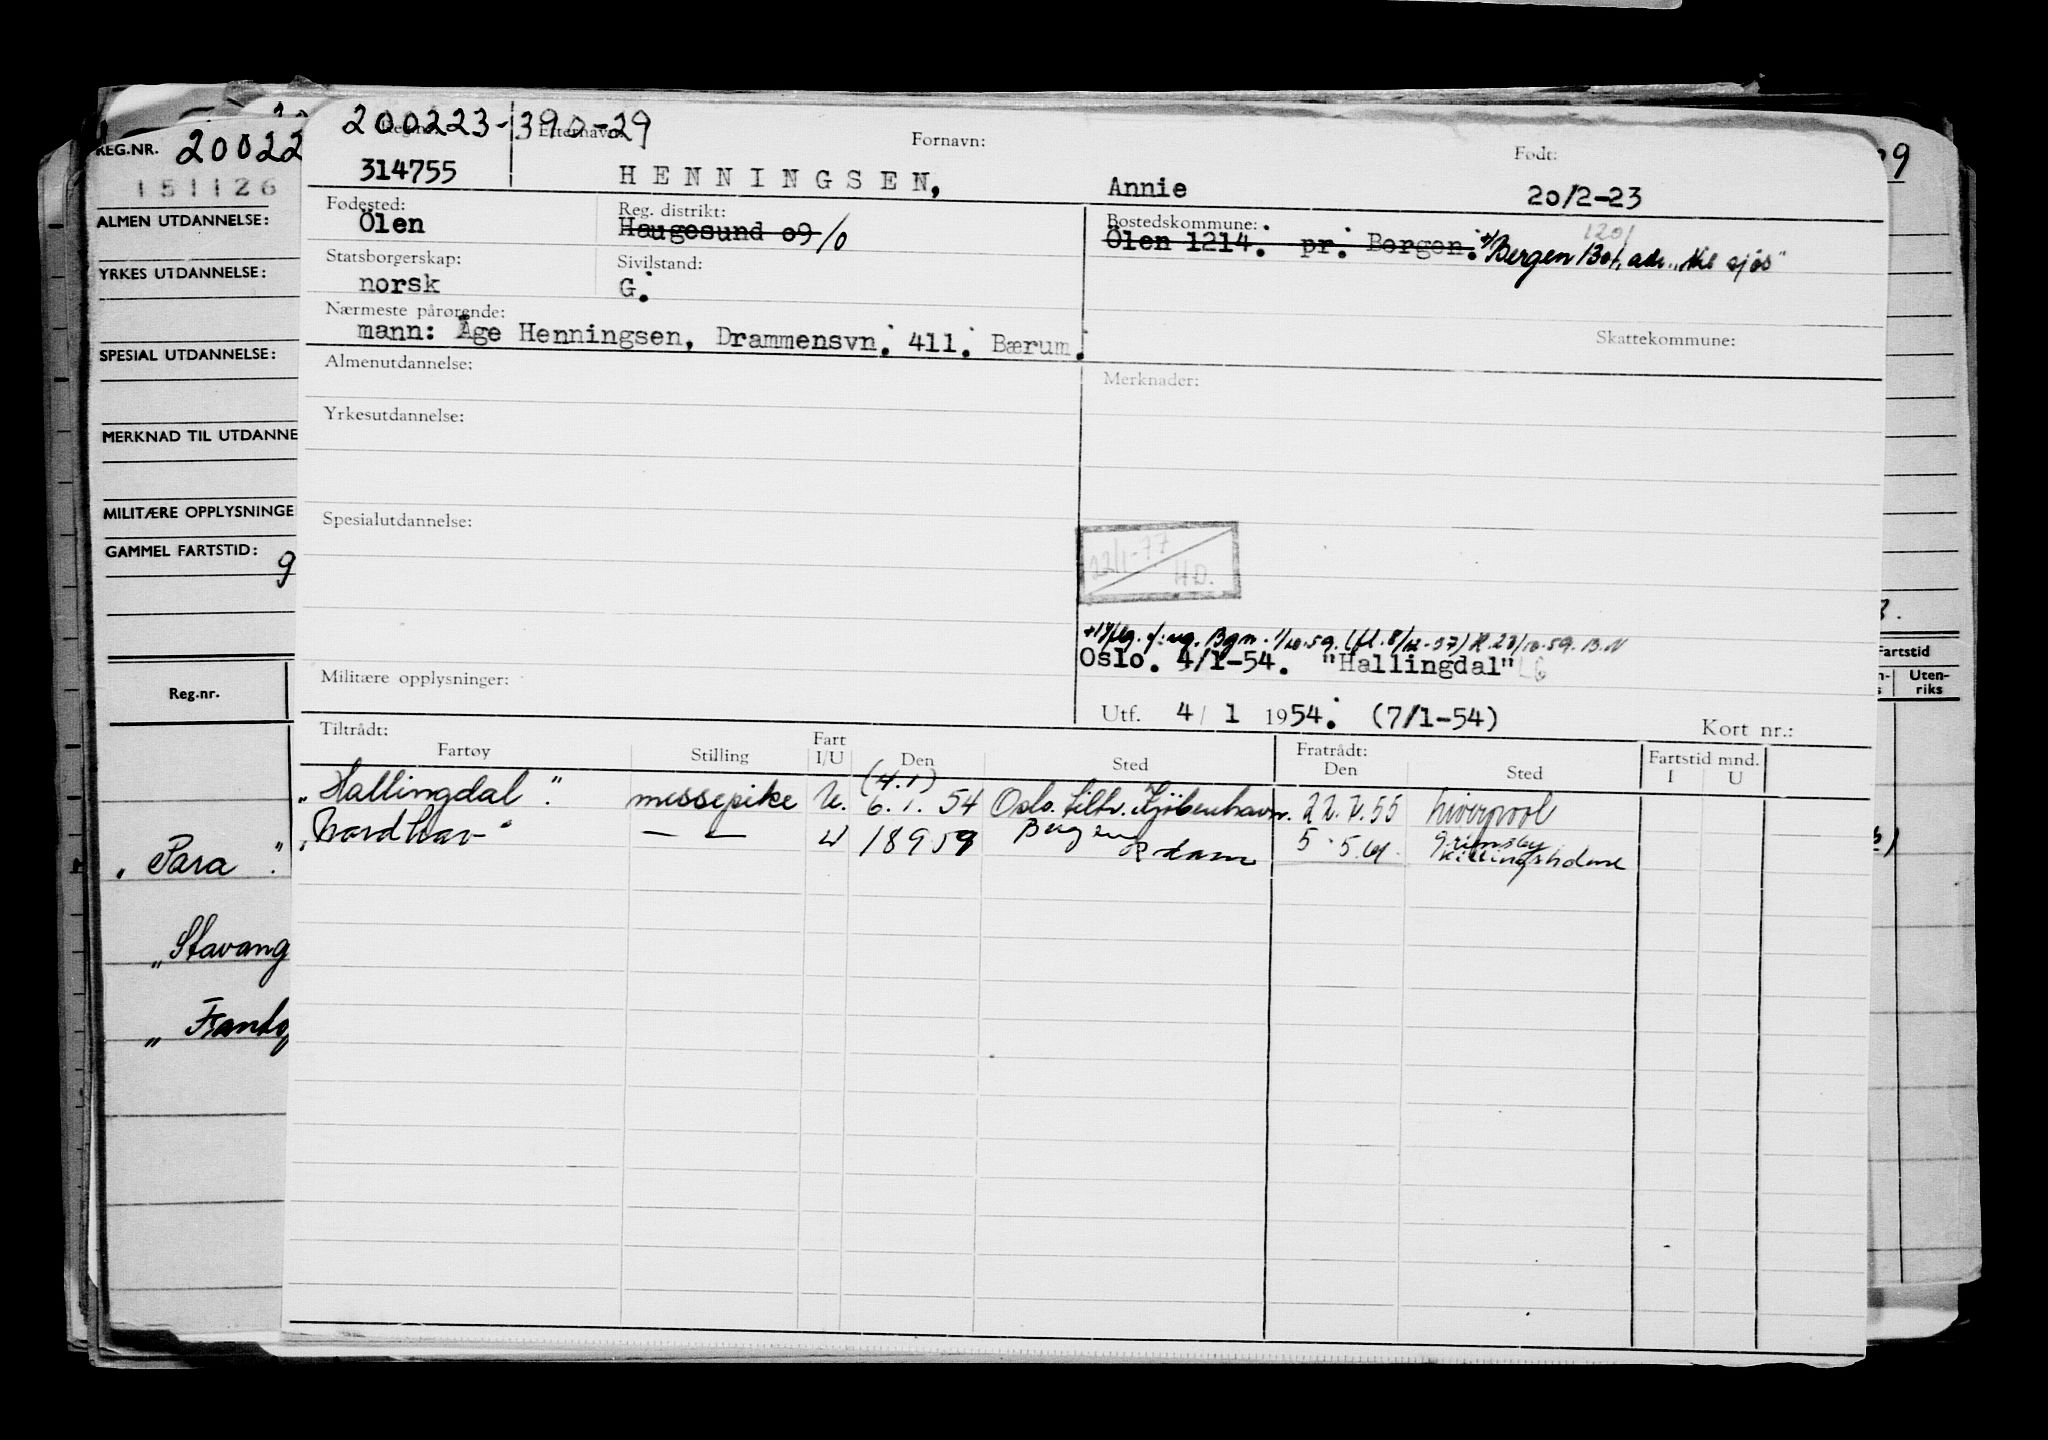 200223-390-29
Reg.nr.: Etternavn: Fornavn: Født:
314755 HENNINGSEN, Annie 20/2-23
Fødested: Reg. distrikt: Bostedskommune: 1201
Ölen Haugesund 09/0 Ölen 1214. pr. Bergen. Bergen 1301, adr. "til sjøs"
Statsborgerskap: Sivilstand:
norsk G.
Nærmeste pårørende:
mann: Åge Henningsen, Drammensvn. 411. Bærum.
Skattekommune:
Almenutdannelse: Merknader:
Yrkesutdannelse:
Spesialutdannelse:
22/1-77
H.D.
Bgn. 1/10.59. (fl. 8/12-57) 23/10.59. B.N
Oslo. 4/1-54. "Hallingdal"
Militære opplysninger:
Utf. 4/1 1954. (7/1-54)
Kort nr.:
Tiltrådt: Fratrådt: Fartstid mnd.
Fartøy Stilling Fart I/U Den Sted Den Sted I U
(4.1)
"Hallingdal". messepike U. 6.1.54 Oslo. tiltr. Kjöbenhavn. 22.7.55 Liverpool
"Nordhav" — — U 18 9 59 Bergen R dam 5.5.61 Grimsby
Killingholme
REG.NR. 20022
151126
ALMEN UTDANNELSE:
YRKES UTDANNELSE:
SPESIAL UTDANNELSE:
MERKNAD TIL UTDANNE
MILITÆRE OPPLYSNINGE
GAMMEL FARTSTID:
9
Reg.nr.
"Para".
"Stavang
"Frantg
9
Fartstid
Uten-
riks